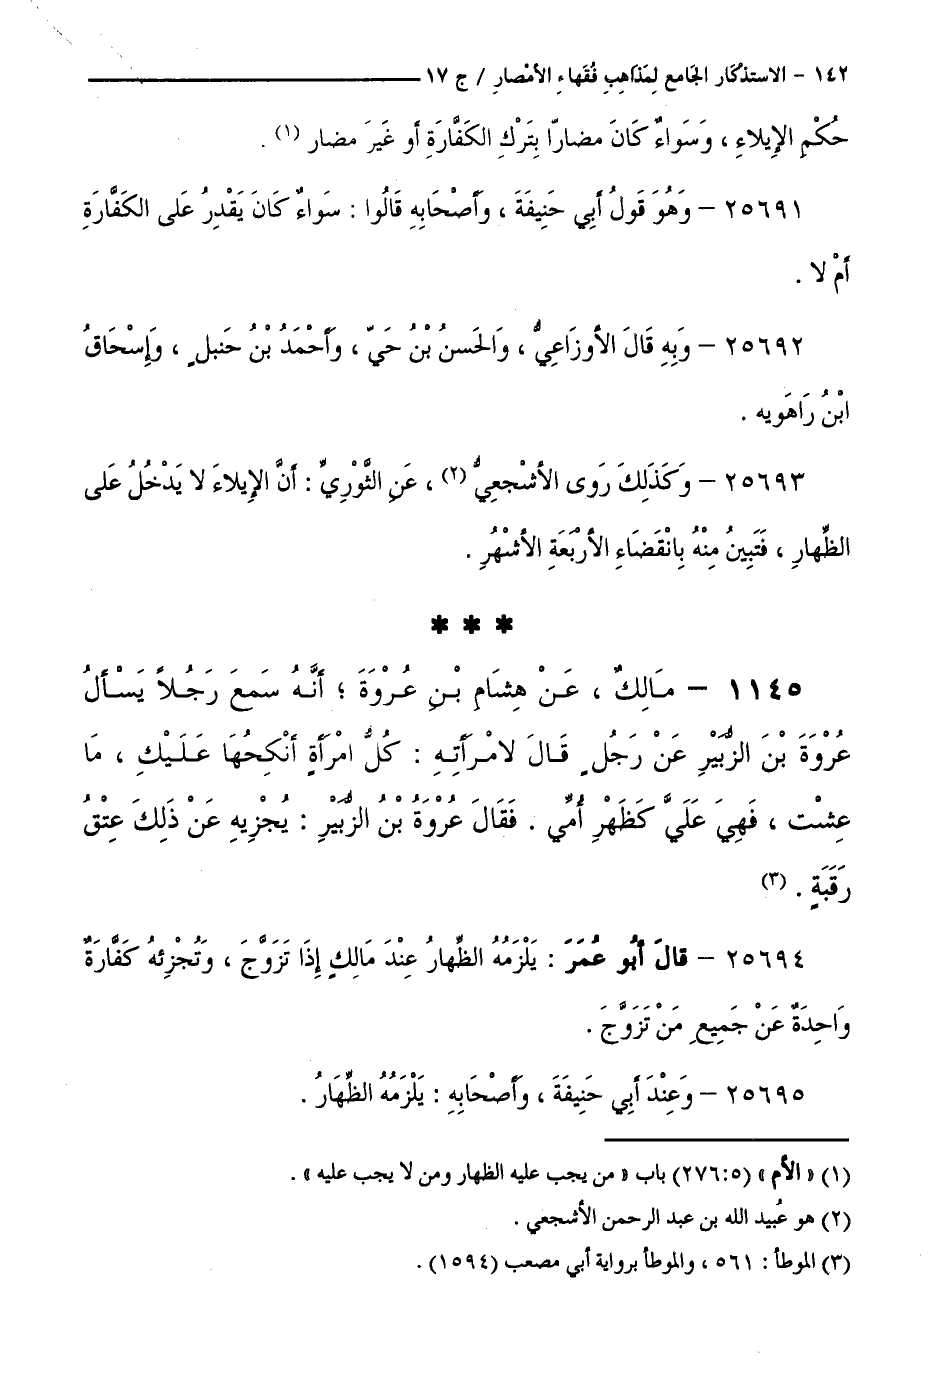 ١٤٢ – الاستذكار الجَامع لِمَذاهِبِ فُقَهاءِ الأمْصارِ / ج ١٧
حُكْمِ الإيلاءِ ، وَسَواءٌ كَانَ مضارّا بِتَرْكِ الكَفَّارَةِ أو غَيرَ مضار (١) .
٢٥٦٩١ – وَهُوَ قَولُ أبِي حَنِيفَةَ ، وأصْحَابِهِ قَالُوا : سَواءٌ كَانَ يَقْدِرُ عَلى الكَفَّارَةِ
أمْ لا .
٢٥٦٩٢ – وَبِهِ قَالَ الأوزَاعِيُّ ، وَالحَسنُ بْنُ حَيّ ، وَأحْمَدُ بْنُ حَنبلٍ ، وَإِسْحَاقُ
ابْنُ رَاهَويه .
٢٥٦٩٣ – وَكَذَلِكَ رَوى الأشْجعِيُّ (٢) ، عَنِ الثَّوْرِيِّ : أنَّ الإِيلاءَ لا يَدْخُلُ عَلى
الظِّهارِ ، فَتَبِينُ مِنْهُ بِانْقَضَاءِ الأرْبَعَةِ الأشْهُرِ .
* * *
١١٤٥ – مَالِكٌ ، عَنْ هِشَامِ بْنِ عُرْوَةَ ؛ أنَّهُ سَمعَ رَجُلاً يَسْألُ
عُرْوَةَ بْنَ الزُّبَيْرِ عَنْ رَجُلٍ قَالَ لامْرَأتِهِ : كُلُّ امْرَأةٍ أنْكِحُهَا عَلَيْكِ ، مَا
عِشْت ، فَهِيَ عَلَيَّ كَظَهْرِ أُمِّي . فَقَالَ عُرْوَةُ بْنُ الزُّبَيْرِ : يُجْزِيهِ عَنْ ذَلِكَ عِتْقُ
رَقَبَةٍ . (٣)
٢٥٦٩٤ – قالَ أبُو عُمَرَ : يَلْزَمُهُ الظِّهارُ عِنْدَ مَالِكٍ إِذَا تَزَوَّجَ ، وَتُجْزِئهُ كَفَّارَةٌ
وَاحِدَةٌ عَنْ جَمِيعِ مَنْ تَزَوَّجَ .
٢٥٦٩٥ – وَعِنْدَ أبِي حَنِيفَةَ ، وَأصْحَابِهِ : يَلْزَمُهُ الظِّهَارُ .
(١) « الأم » (٥:٢٧٦) باب « من يجب عليه الظهار ومن لا يجب عليه » .
(٢) هو عُبيد الله بن عبد الرحمن الأشجعي .
(٣) الموطأ : ٥٦١ ، والموطأ برواية أبي مصعب (١٥٩٤) .